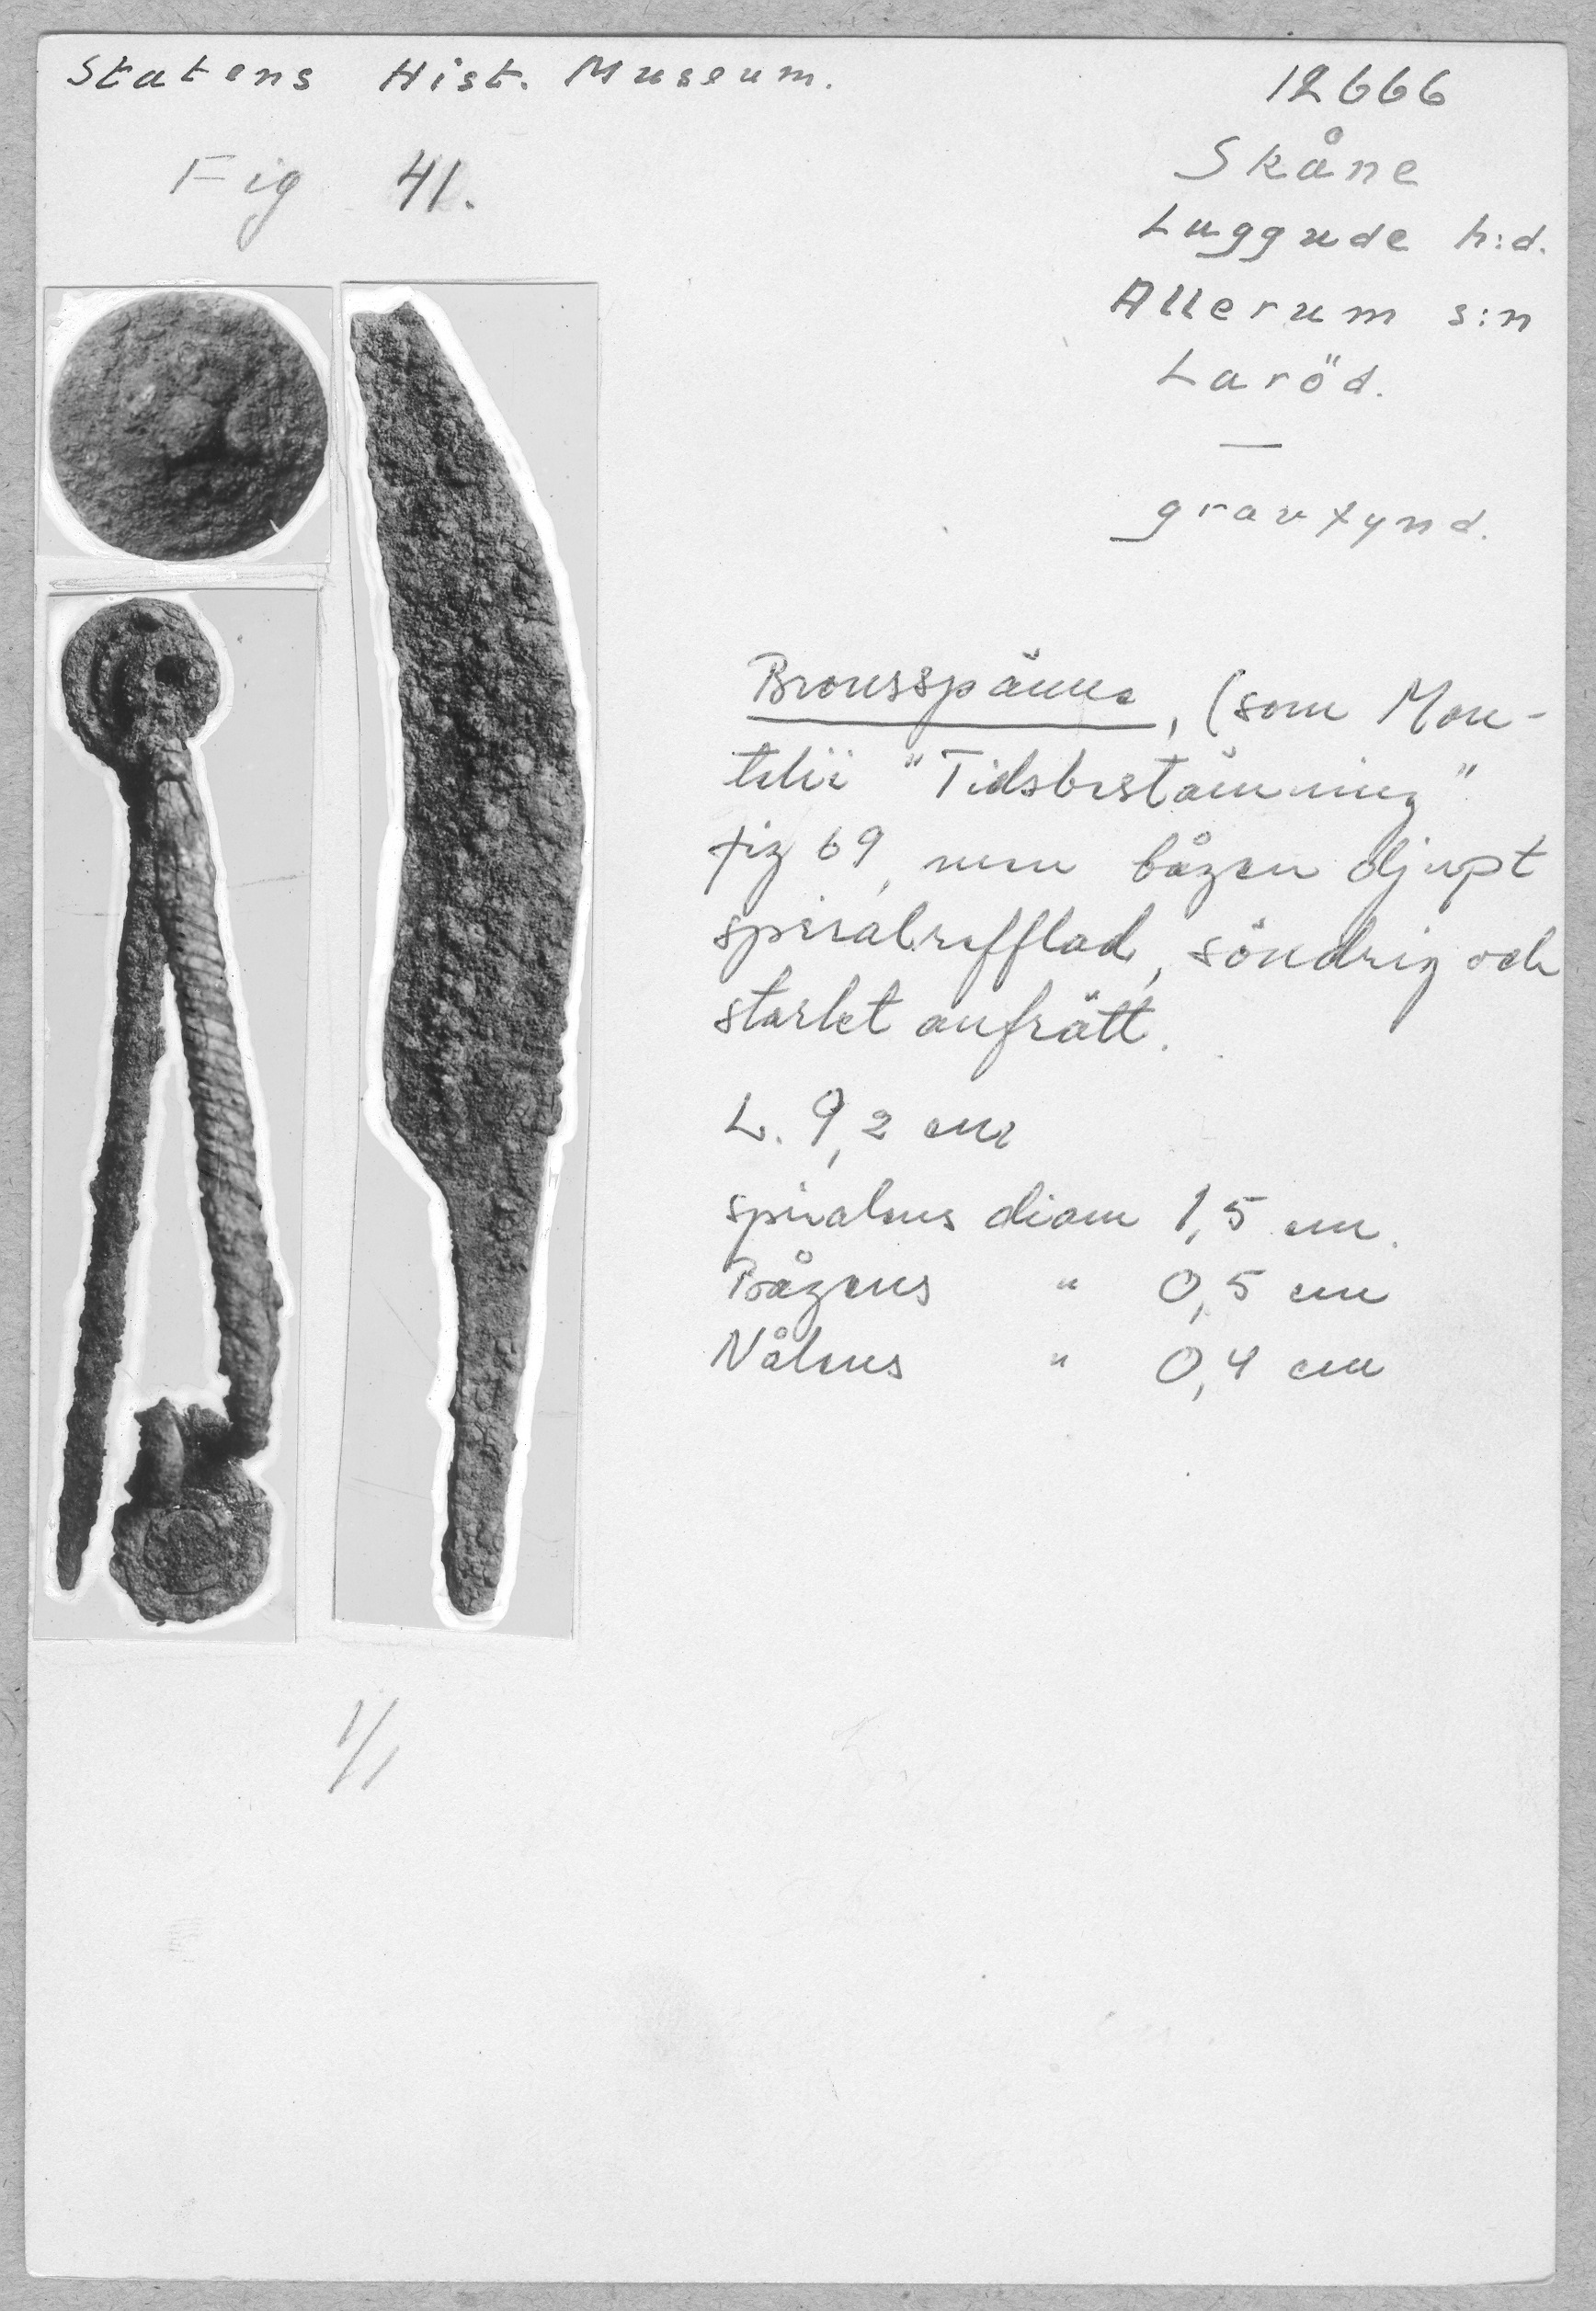 Statens Hist. Museum.
12666
Fig 41.
Skåne
Luggude h:d.
Allerum s:n
Laröd.
—
gravfynd.
Bronsspänne, (som Mon-
telii "Tidsbestämning"
fig 69, men bågen djupt
spiralrefflad, söndrig och
starkt anfrätt.
L. 9,2 cm
spiralens diam 1,5 cm.
Bågens " 0,5 cm
Nålens " 0,4 cm
1/1